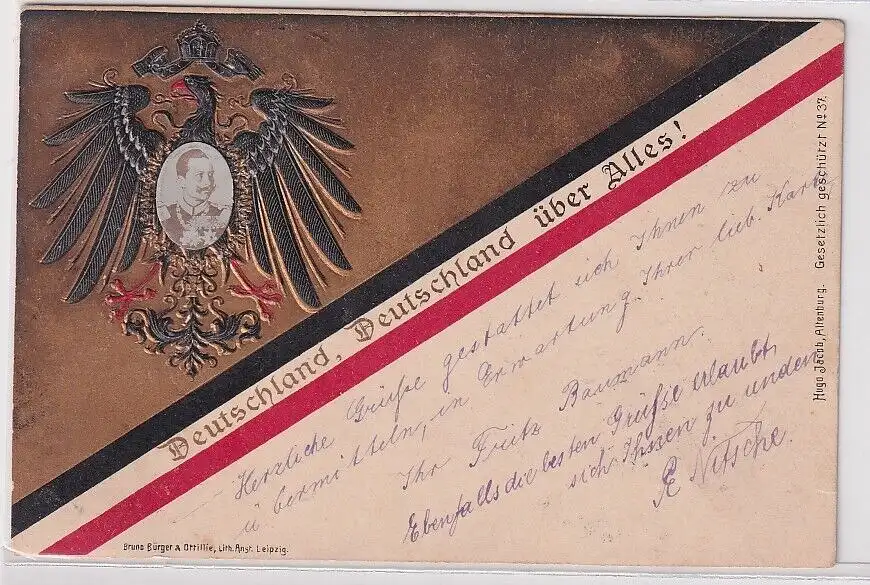 Deutschland, Deutschland über Alles!
Herzliche Grüße gestattet sich Ihnen zu
übermitteln, in Erwartung Ihrer lieb. Karte
Ihr Fritz Baumann.
Ebenfalls die besten Grüße erlaubt
sich Ihnen zu senden
E Nitsche.
Hugo Jacob, Altenburg. Gesetzlich geschützt No 37.
Bruno Bürger & Ottillie, Lith. Anst. Leipzig.